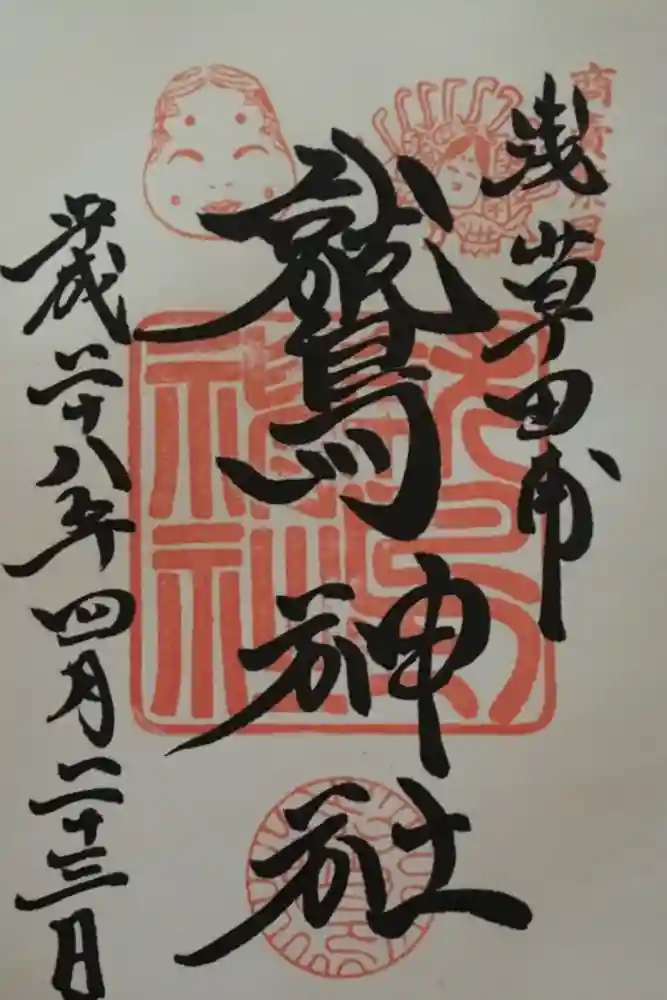 商賣繁昌
浅草田甫
鷲神社
平成二十八年四月二十三日